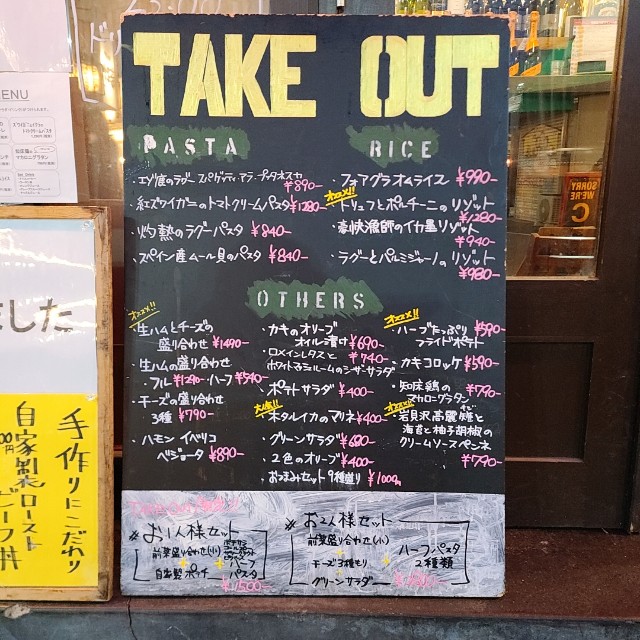 TAKE OUT
PASTA
RICE
¥890-
オススメ!!
紅ズワイガニのトマトクリームパスタ ¥1280-
灼熱のラグーパスタ ¥840-
スペイン産ムール貝のパスタ ¥840-
フォアグラオムライス ¥990-
トリュフとポルチーニのリゾット
¥1280-
豪快漁師のイカ墨リゾット
¥940-
ラグーとパルミジャーノのリゾット
¥980-
OTHERS
オススメ!!
生ハムとチーズの
盛り合わせ ¥1490-
生ハムの盛り合わせ
・フル ¥1290- ・ハーフ ¥590-
・チーズの盛り合わせ
3種 ¥790-
・ハモン イベリコ
ベジョータ ¥890-
・カキのオリーブ
オイル漬け ¥690-
・ロメインレタスと ¥740-
ホワイトマッシュルームのシーザーサラダ
・ポテトサラダ ¥400-
ホタルイカのマリネ ¥400-
・グリーンサラダ ¥680-
・2色のオリーブ ¥400-
・おつまみセット9種盛り ¥1000-
オススメ!!
・ハーブたっぷり ¥590-
フライドポテト
・カキコロッケ ¥590-
・知床鶏の ¥790-
マカログラタン
オススメ!!
・岩見沢高麗雉と
海苔と柚子胡椒の
クリームソースペンネ
¥790-
お1人様セット
前菜盛り合わせ(小)
+
自家製
ハーフ
パスタ
¥1500-
お2人様セット
前菜盛り合わせ(小)
+
チーズ3種もり
+
グリーンサラダ
+
ハーフパスタ
2種類
MENU
ました
手作りにこだわり
自家製ロースト
ビーフ丼
SORRY
WE'RE